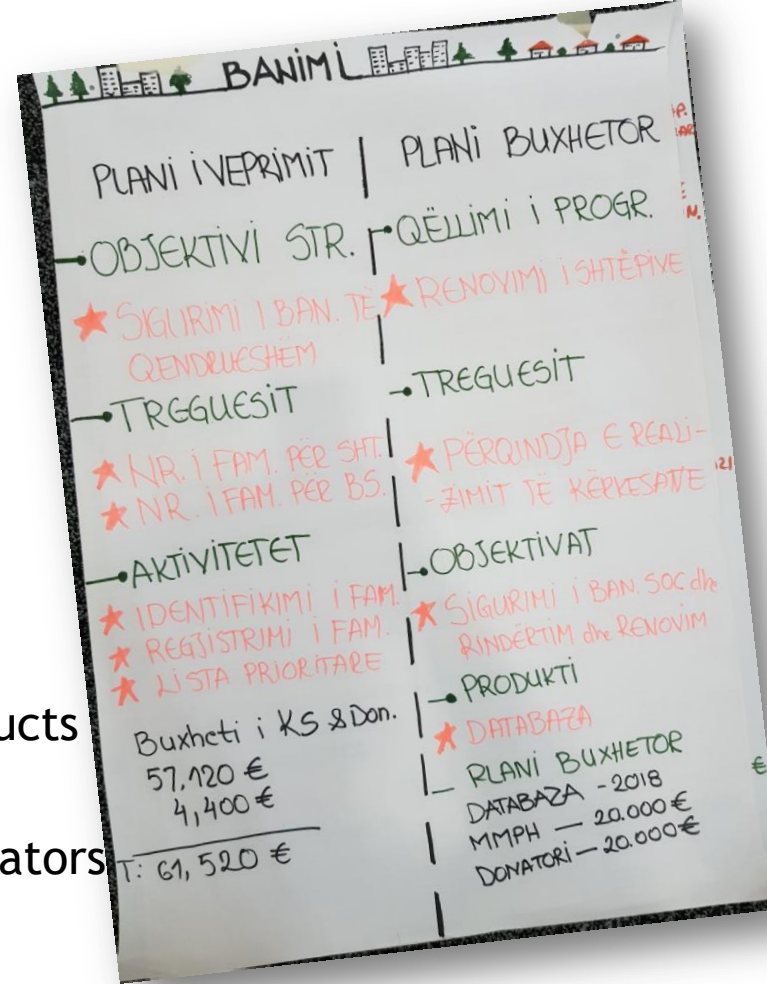 BANIMI
PLANI I VEPRIMIT
OBJEKTIVI STR.
SIGURIMI I BAN. TË
QENDRUESHEM
TREGUESIT
NR. I FAM. PËR SHT.
NR. I FAM. PËR BS.
AKTIVITETET
IDENTIFIKIMI I FAM.
REGJISTRIMI I FAM.
LISTA PRIORITARE
Buxheti i KS & Don.
57,120 €
4,400 €
T: 61,520 €
PLANI BUXHETOR
QËLLIMI I PROGR.
RENOVIMI I SHTËPIVE
TREGUESIT
PËRQINDJA E REALI-
-ZIMIT TË KËRKESAVE
OBJEKTIVAT
SIGURIMI I BAN. SOC dhe
RINDËRTIM dhe RENOVIM
PRODUKTI
DATABAZA
PLANI BUXHETOR
DATABAZA - 2018
MMPH — 20.000 €
DONATORI — 20.000 €
ucts
ators
€